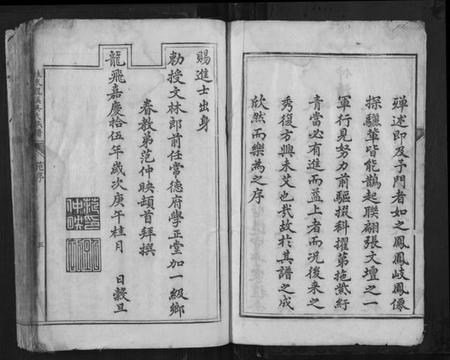 殫述即及予門者如之鳳鳳岐鳳儀
探驪輩皆能鵲起聯翩張文壇之一
軍行見努力前驅掇科擢第拖紫紆
青當必有進而益上者而况後來之
秀復方興未艾也哉故於其譜之成
欣然而樂為之序
賜進士出身
勅授文林郎前任常德府學正堂加一級鄉
眷教弟范仲映頓首拜撰
龍飛嘉慶拾伍年歲次庚午桂月 日穀旦
仲映